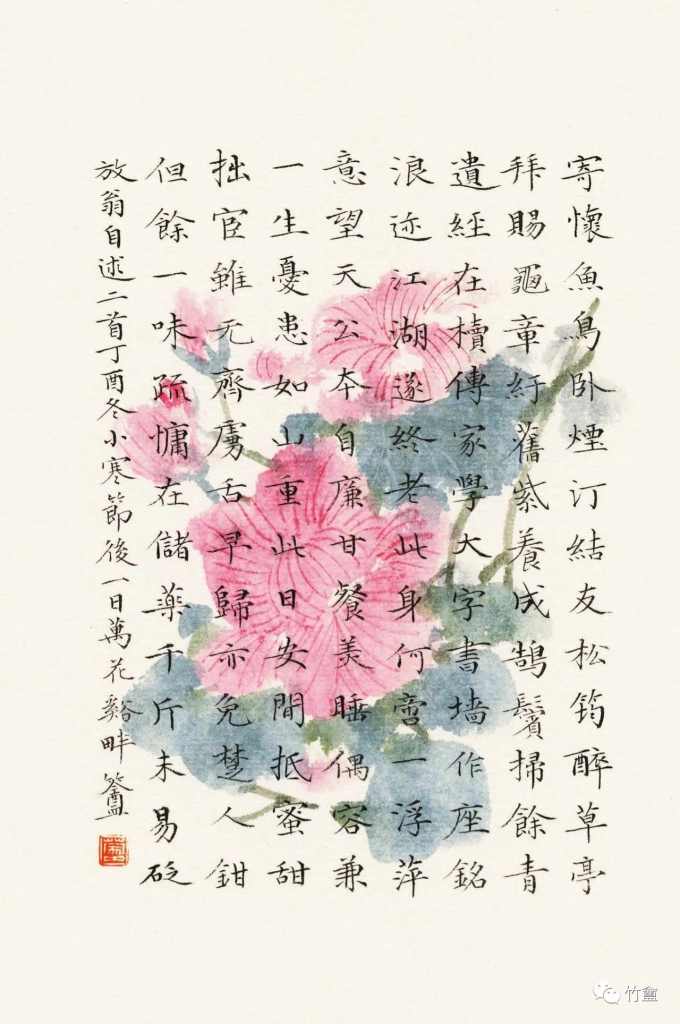 寄懷魚鳥卧煙汀結友松筠醉草亭
拜賜龜章紆舊紫養成鵠鬢掃餘青
遺經在櫝傳家學大字書墻作座銘
浪迹江湖遂終老此身何啻一浮萍
意望天公本自廉甘餐美睡偶容兼
一生憂患如山重此日安閒抵蜜甜
拙宦雖无齊虜舌早歸亦免楚人鉗
但餘一味疏慵在儲藥千斤未易砭
放翁自述二首丁酉冬小寒節後一日萬花谿畔簽
竹盦